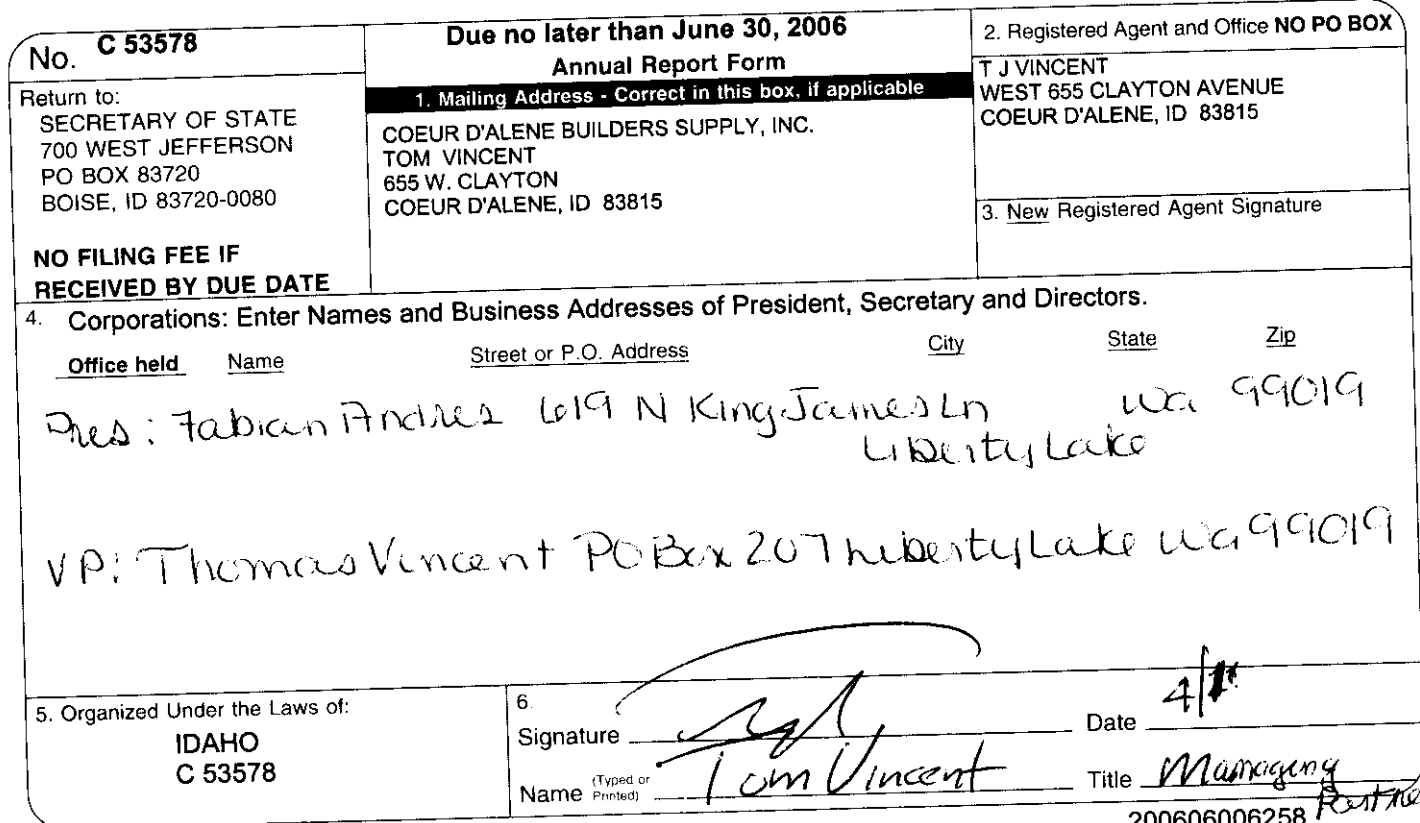 No. C 53578
Return to:
SECRETARY OF STATE
700 WEST JEFFERSON
PO BOX 83720
BOISE, ID 83720-0080
NO FILING FEE IF
RECEIVED BY DUE DATE
Due no later than June 30, 2006
Annual Report Form
1. Mailing Address - Correct in this box, if applicable
COEUR D'ALENE BUILDERS SUPPLY, INC.
TOM VINCENT
655 W. CLAYTON
COEUR D'ALENE, ID 83815
2. Registered Agent and Office NO PO BOX
T J VINCENT
WEST 655 CLAYTON AVENUE
COEUR D'ALENE, ID 83815
3. New Registered Agent Signature
4. Corporations: Enter Names and Business Addresses of President, Secretary and Directors.
Office held Name Street or P.O. Address City State Zip
Pres: Fabian Andres 619 N King James Ln Wa 99019
Liberty Lake
VP: Thomas Vincent PO Box 207 Liberty Lake Wa 99019
5. Organized Under the Laws of:
IDAHO
C 53578
6.
Signature
Date 4/
Name (Typed or Printed) Tom Vincent
Title Managing
Partne
200606006258